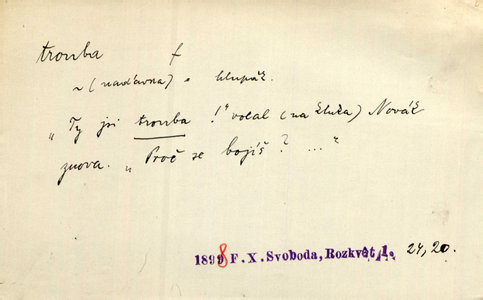 trouba f
~ (nadávka) = hlupák.
„Ty jsi trouba !“ volal (na kluka) Novák
znova. „Proč se bojíš? ...“
1898 F. X. Svoboda, Rozkvět 1. 24,20.